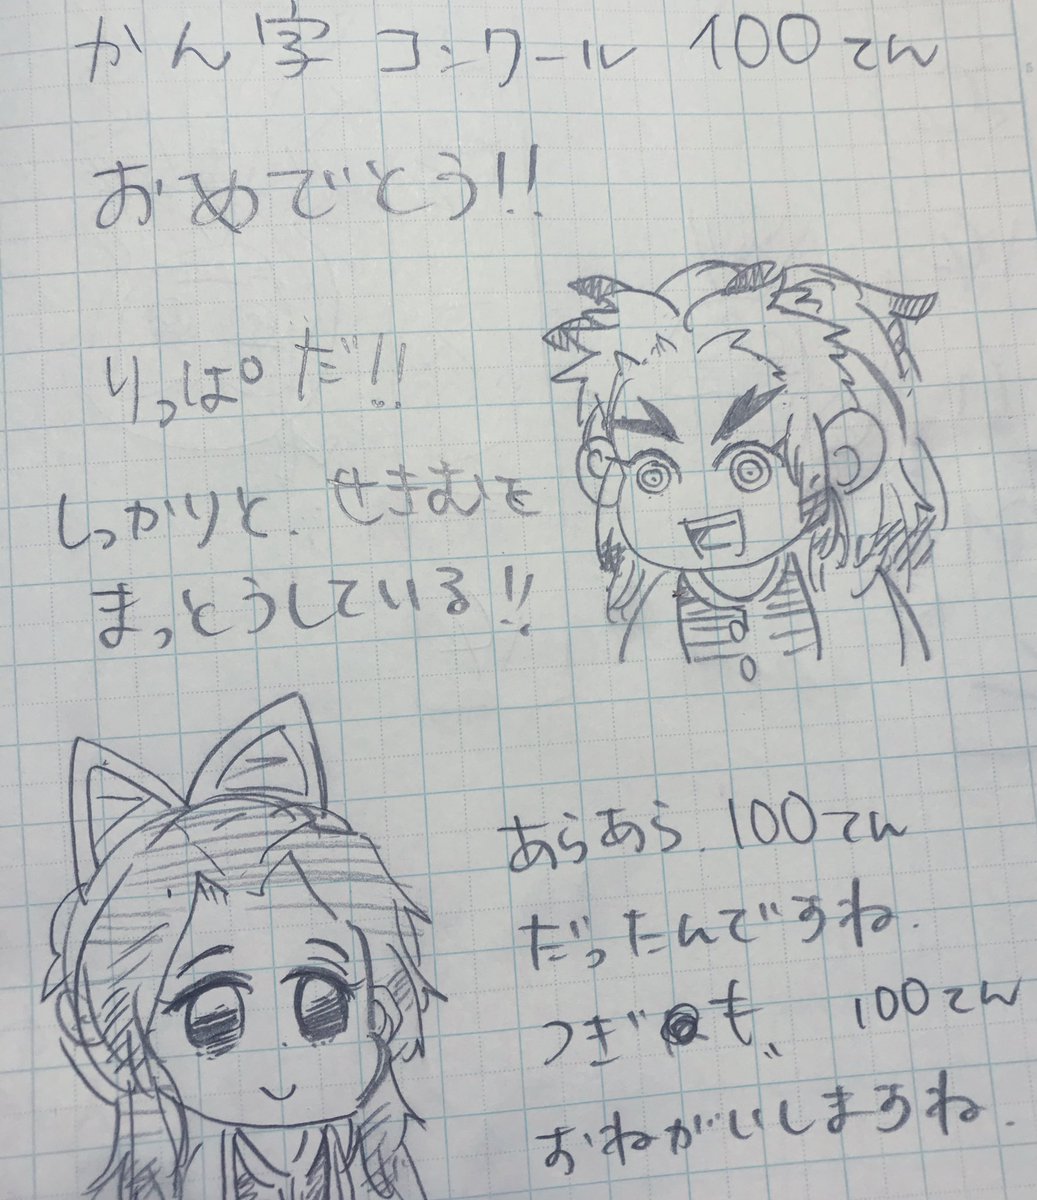 かん字コンクール 100てん
おめでとう!!
りっぱだ!!
しっかりと、せきむを
まっとうしている!!
あらあら、100てん
だったんですね。
つぎも、100てん
おねがいしますね。